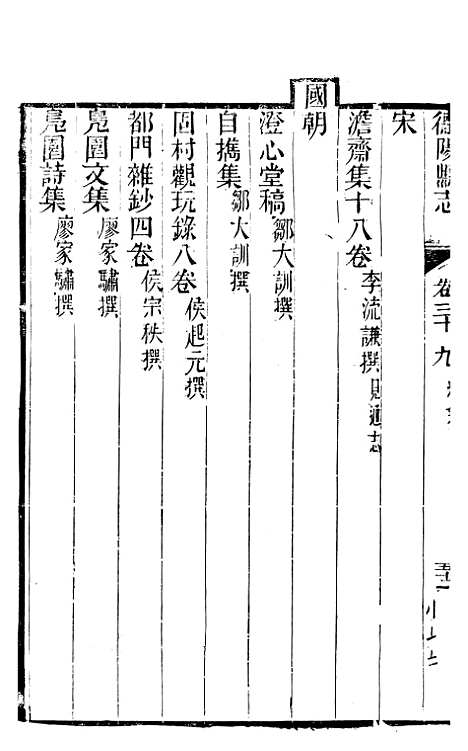 德陽縣志 卷三十九
宋
澹齋集十八卷 李流謙撰 見通志
國朝
澄心堂稿 鄒大訓撰
自攜集 鄒大訓撰
固村觀玩錄八卷 侯起元撰
都門雜鈔四卷 侯宗秩撰
鳧園文集 廖家驌撰
鳧園詩集 廖家驌撰